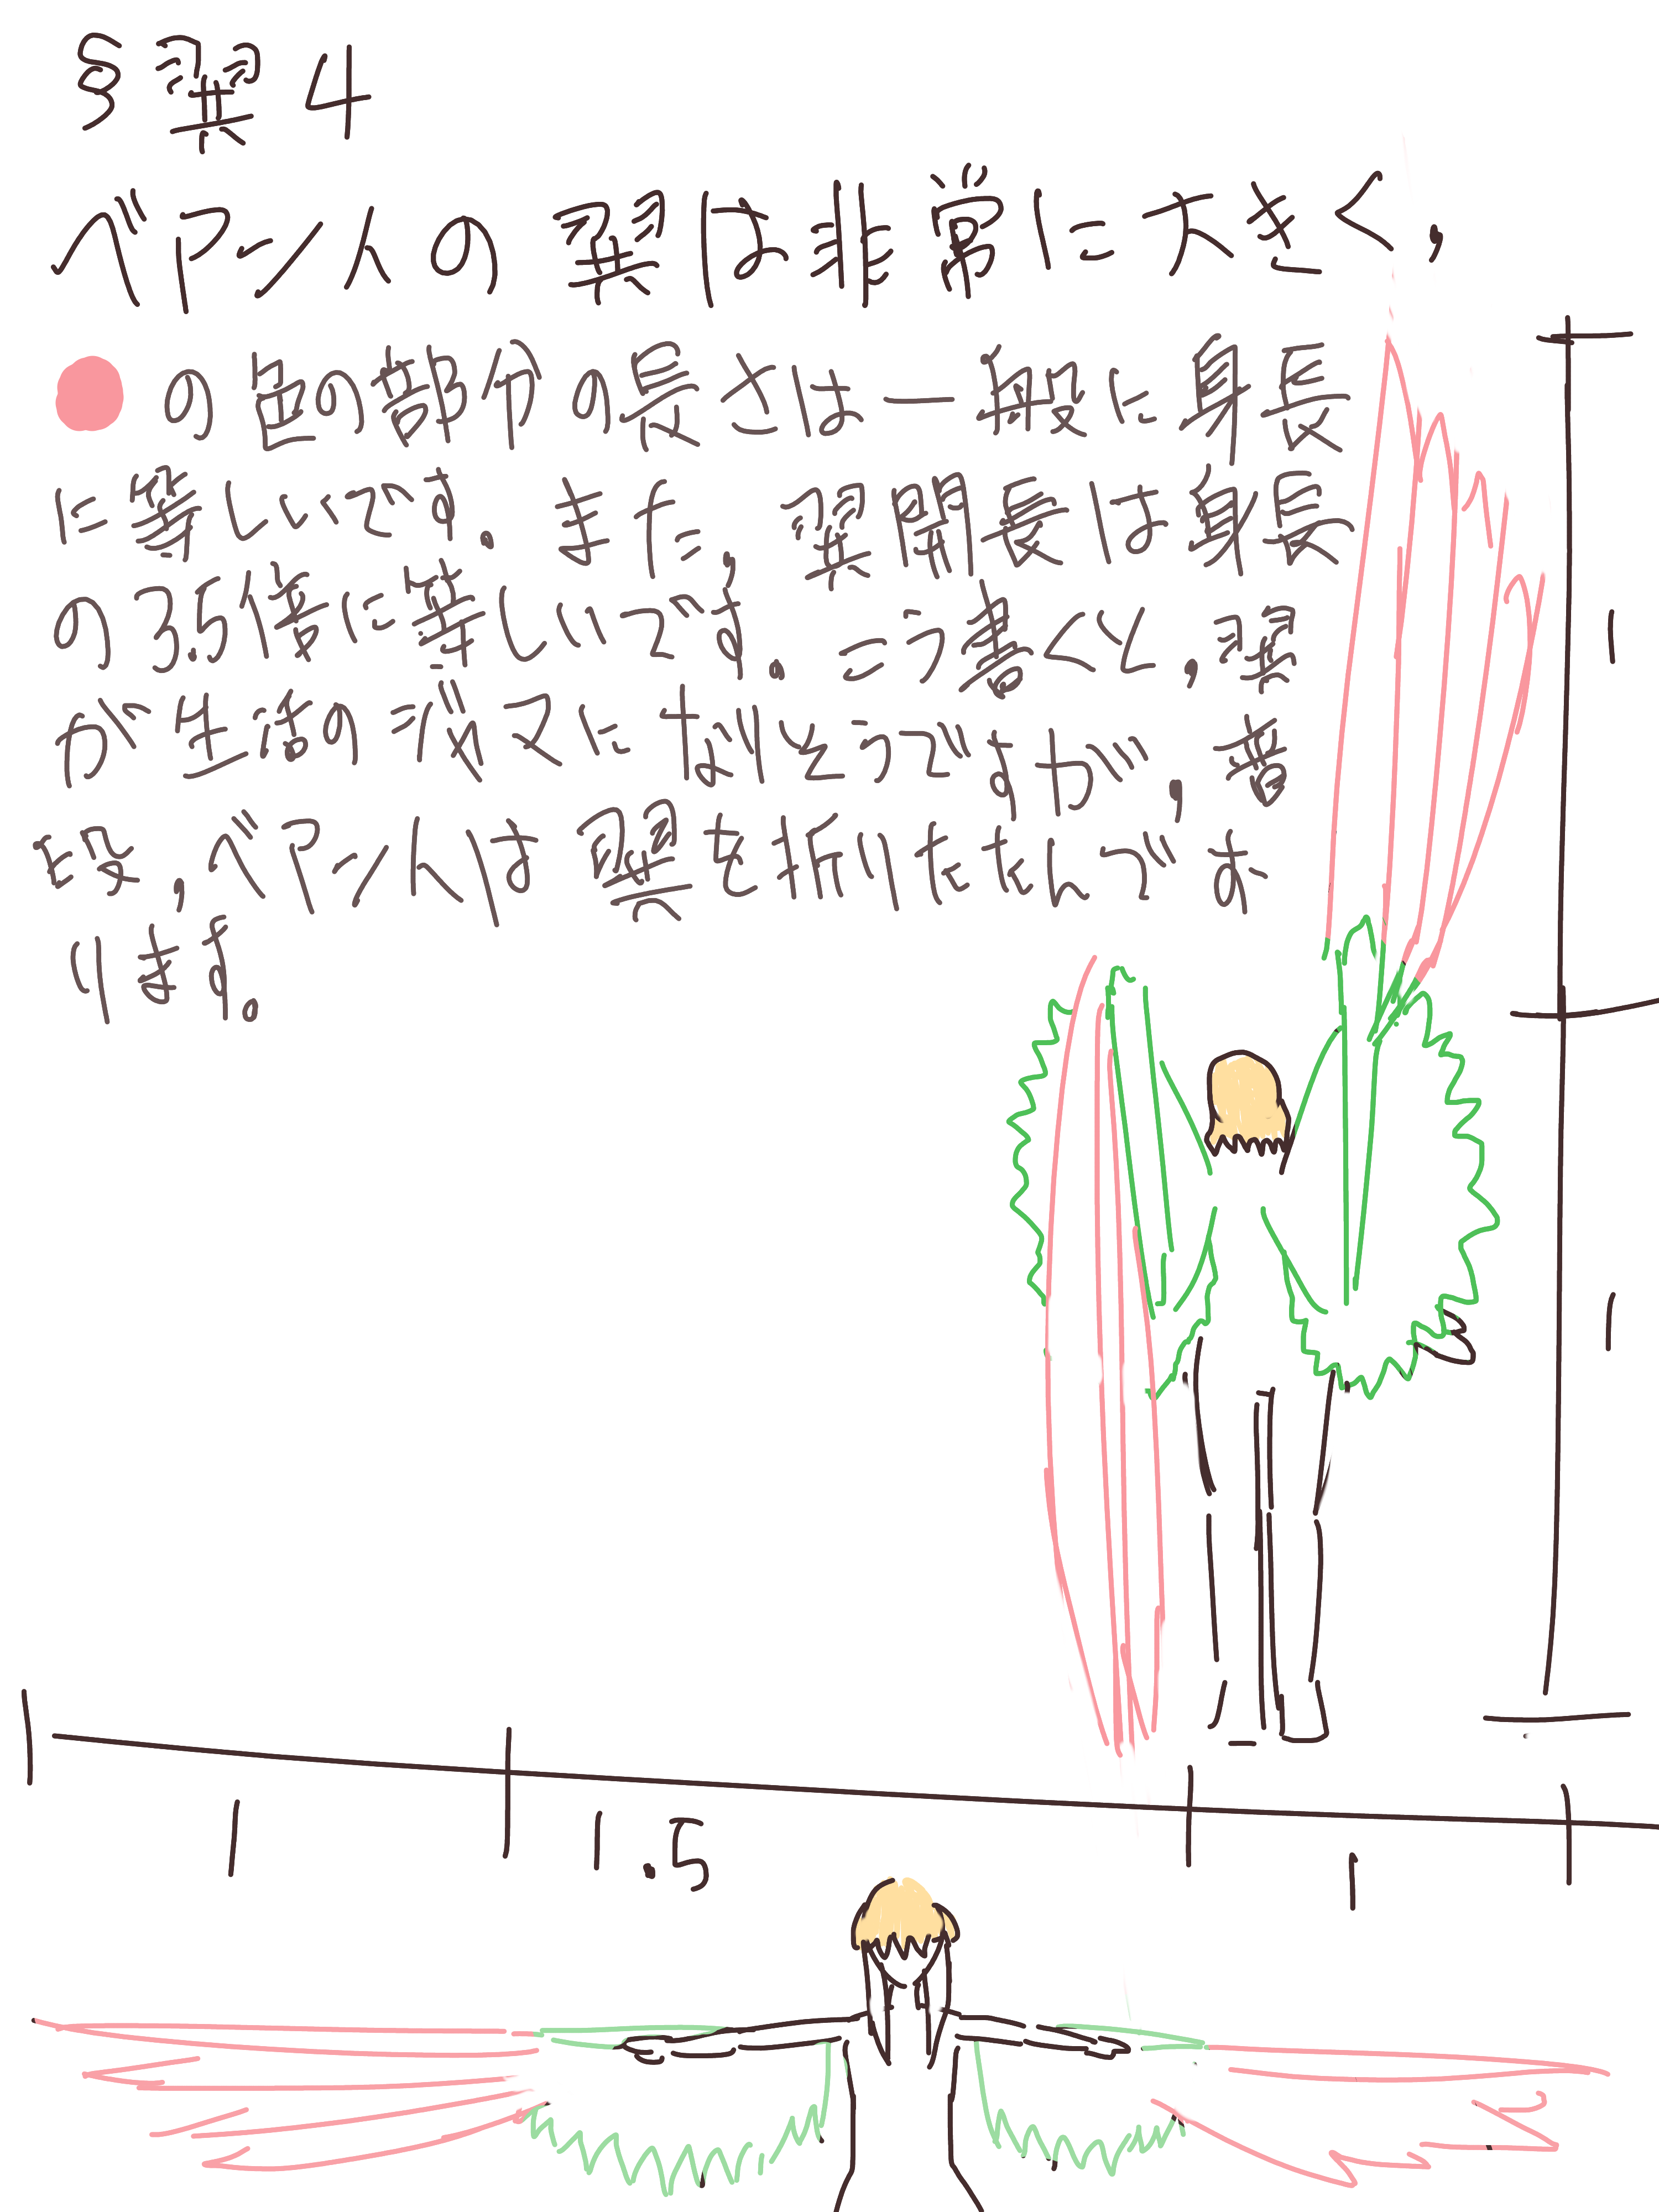 §翼4
ベアント人の翼は非常に大きく,
の色の部分の長さは一般に身長
に等しいです.また,翼開長は身長
の3.5倍に等しいです。こう書くと,翼
が生活のジャマになりそうですが,普
段,ベアント人は翼を折りたたんでお
ります。
1
1
1
1.5
1